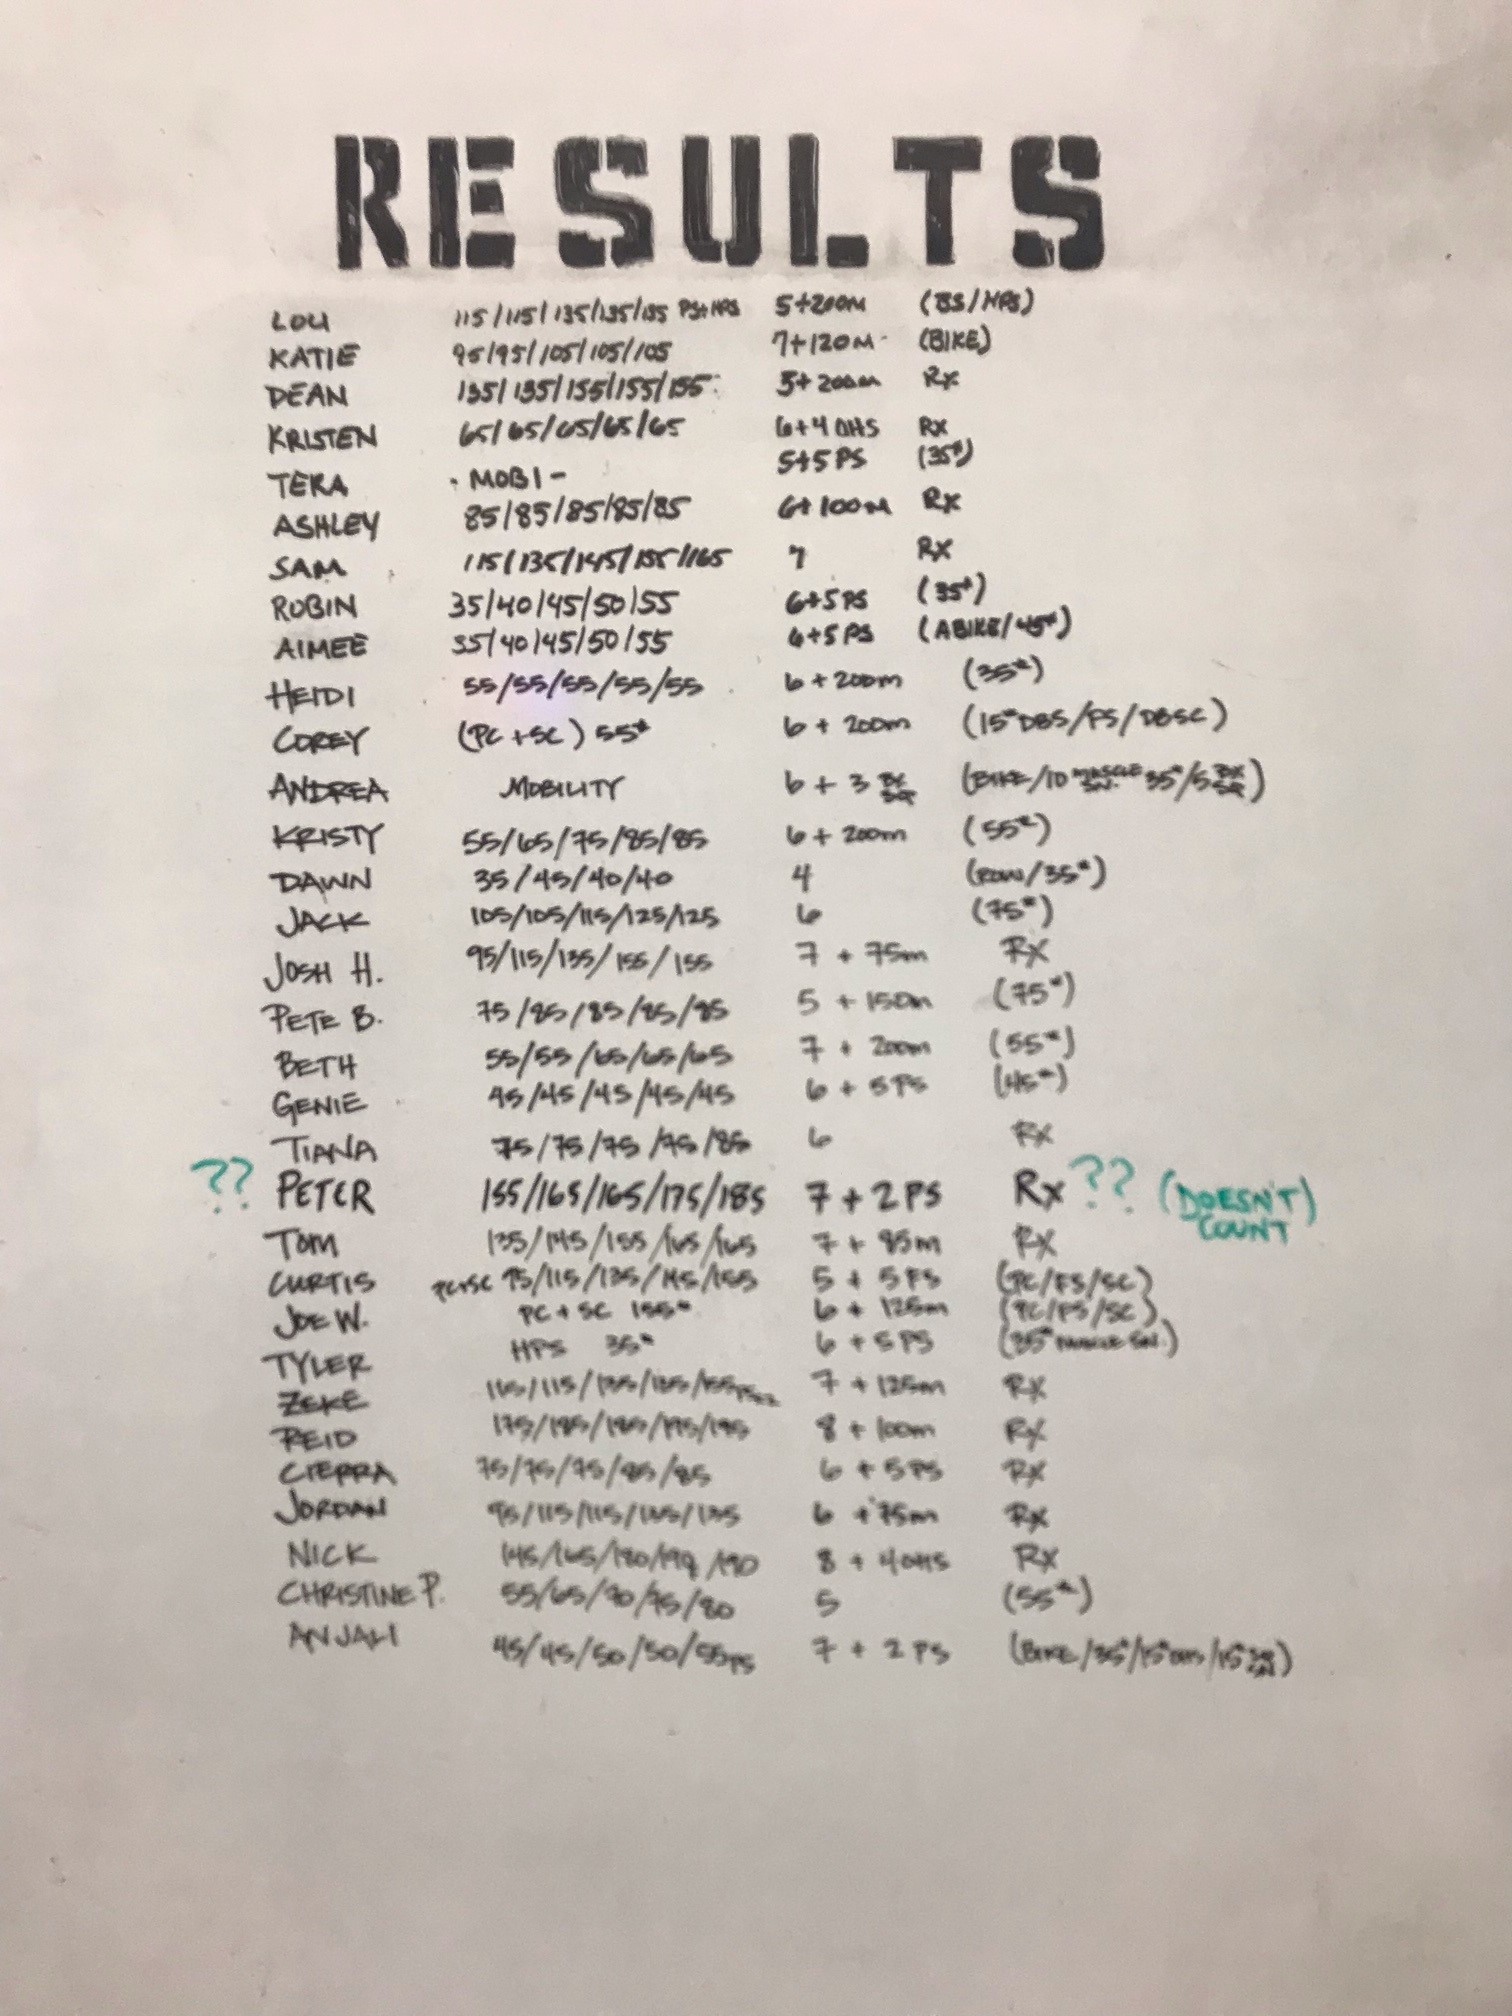 RESULTS
LOU 115/115/135/135/135 PS+HPS 5+200M (BS/HPS)
KATIE 95/95/105/105/105 7+120M (BIKE)
DEAN 135/135/155/155/155 5+200m Rx
KRISTEN 65/65/65/65/65 6+4 OHS RX
TERA -MOBI- 5+5 PS (35#)
ASHLEY 85/85/85/85/85 6+100M Rx
SAM 115/135/145/155/165 7 RX
ROBIN 35/40/45/50/55 6+5PS (35#)
AIMEE 35/40/45/50/55 6+5PS (ABIKE/45#)
HEIDI 55/55/55/55/55 6+200m (35#)
COREY (PC+SC) 55# 6 + 200m (15# DBS/FS/DBSC)
ANDREA MOBILITY 6 + 3 BX SQ (BIKE/10 MUSCLE SN. 35#/5 BX SQ)
KRISTY 55/65/75/85/85 6 + 200m (55#)
DAWN 35/45/40/40 4 (ROW/35#)
JACK 105/105/115/125/125 6 (75#)
JOSH H. 95/115/135/155/155 7 + 75m RX
PETE B. 75/85/85/85/85 5 + 150m (75#)
BETH 55/55/65/65/65 7 + 200m (55#)
GENIE 45/45/45/45/45 6 + 5PS (45#)
TIANA 75/75/75/75/85 6 RX
?? PETER 155/165/165/175/185 7 + 2 PS Rx ?? (DOESN'T COUNT)
TOM 135/145/155/165/165 7 + 85m RX
CURTIS PC+SC 95/115/135/145/155 5 + 5 FS (PC/FS/SC)
JOE W. PC + SC 155# 6 + 125m (PC/FS/SC)
TYLER HPS 35# 6 + 5PS (35# MUSCLE SN.)
ZEKE 115/115/135/135/155 7 + 125m RX
REID 175/185/185/195/195 8 + 100m RX
CIERRA 75/75/75/85/85 6 + 5PS RX
JORDAN 95/115/115/135/135 6 + 75m RX
NICK 145/165/180/190/190 8 + 4OHS RX
CHRISTINE P. 55/65/70/75/80 5 (55#)
ANJALI 45/45/50/50/55PS 7 + 2 PS (BIKE/35#/15# OHS/15#